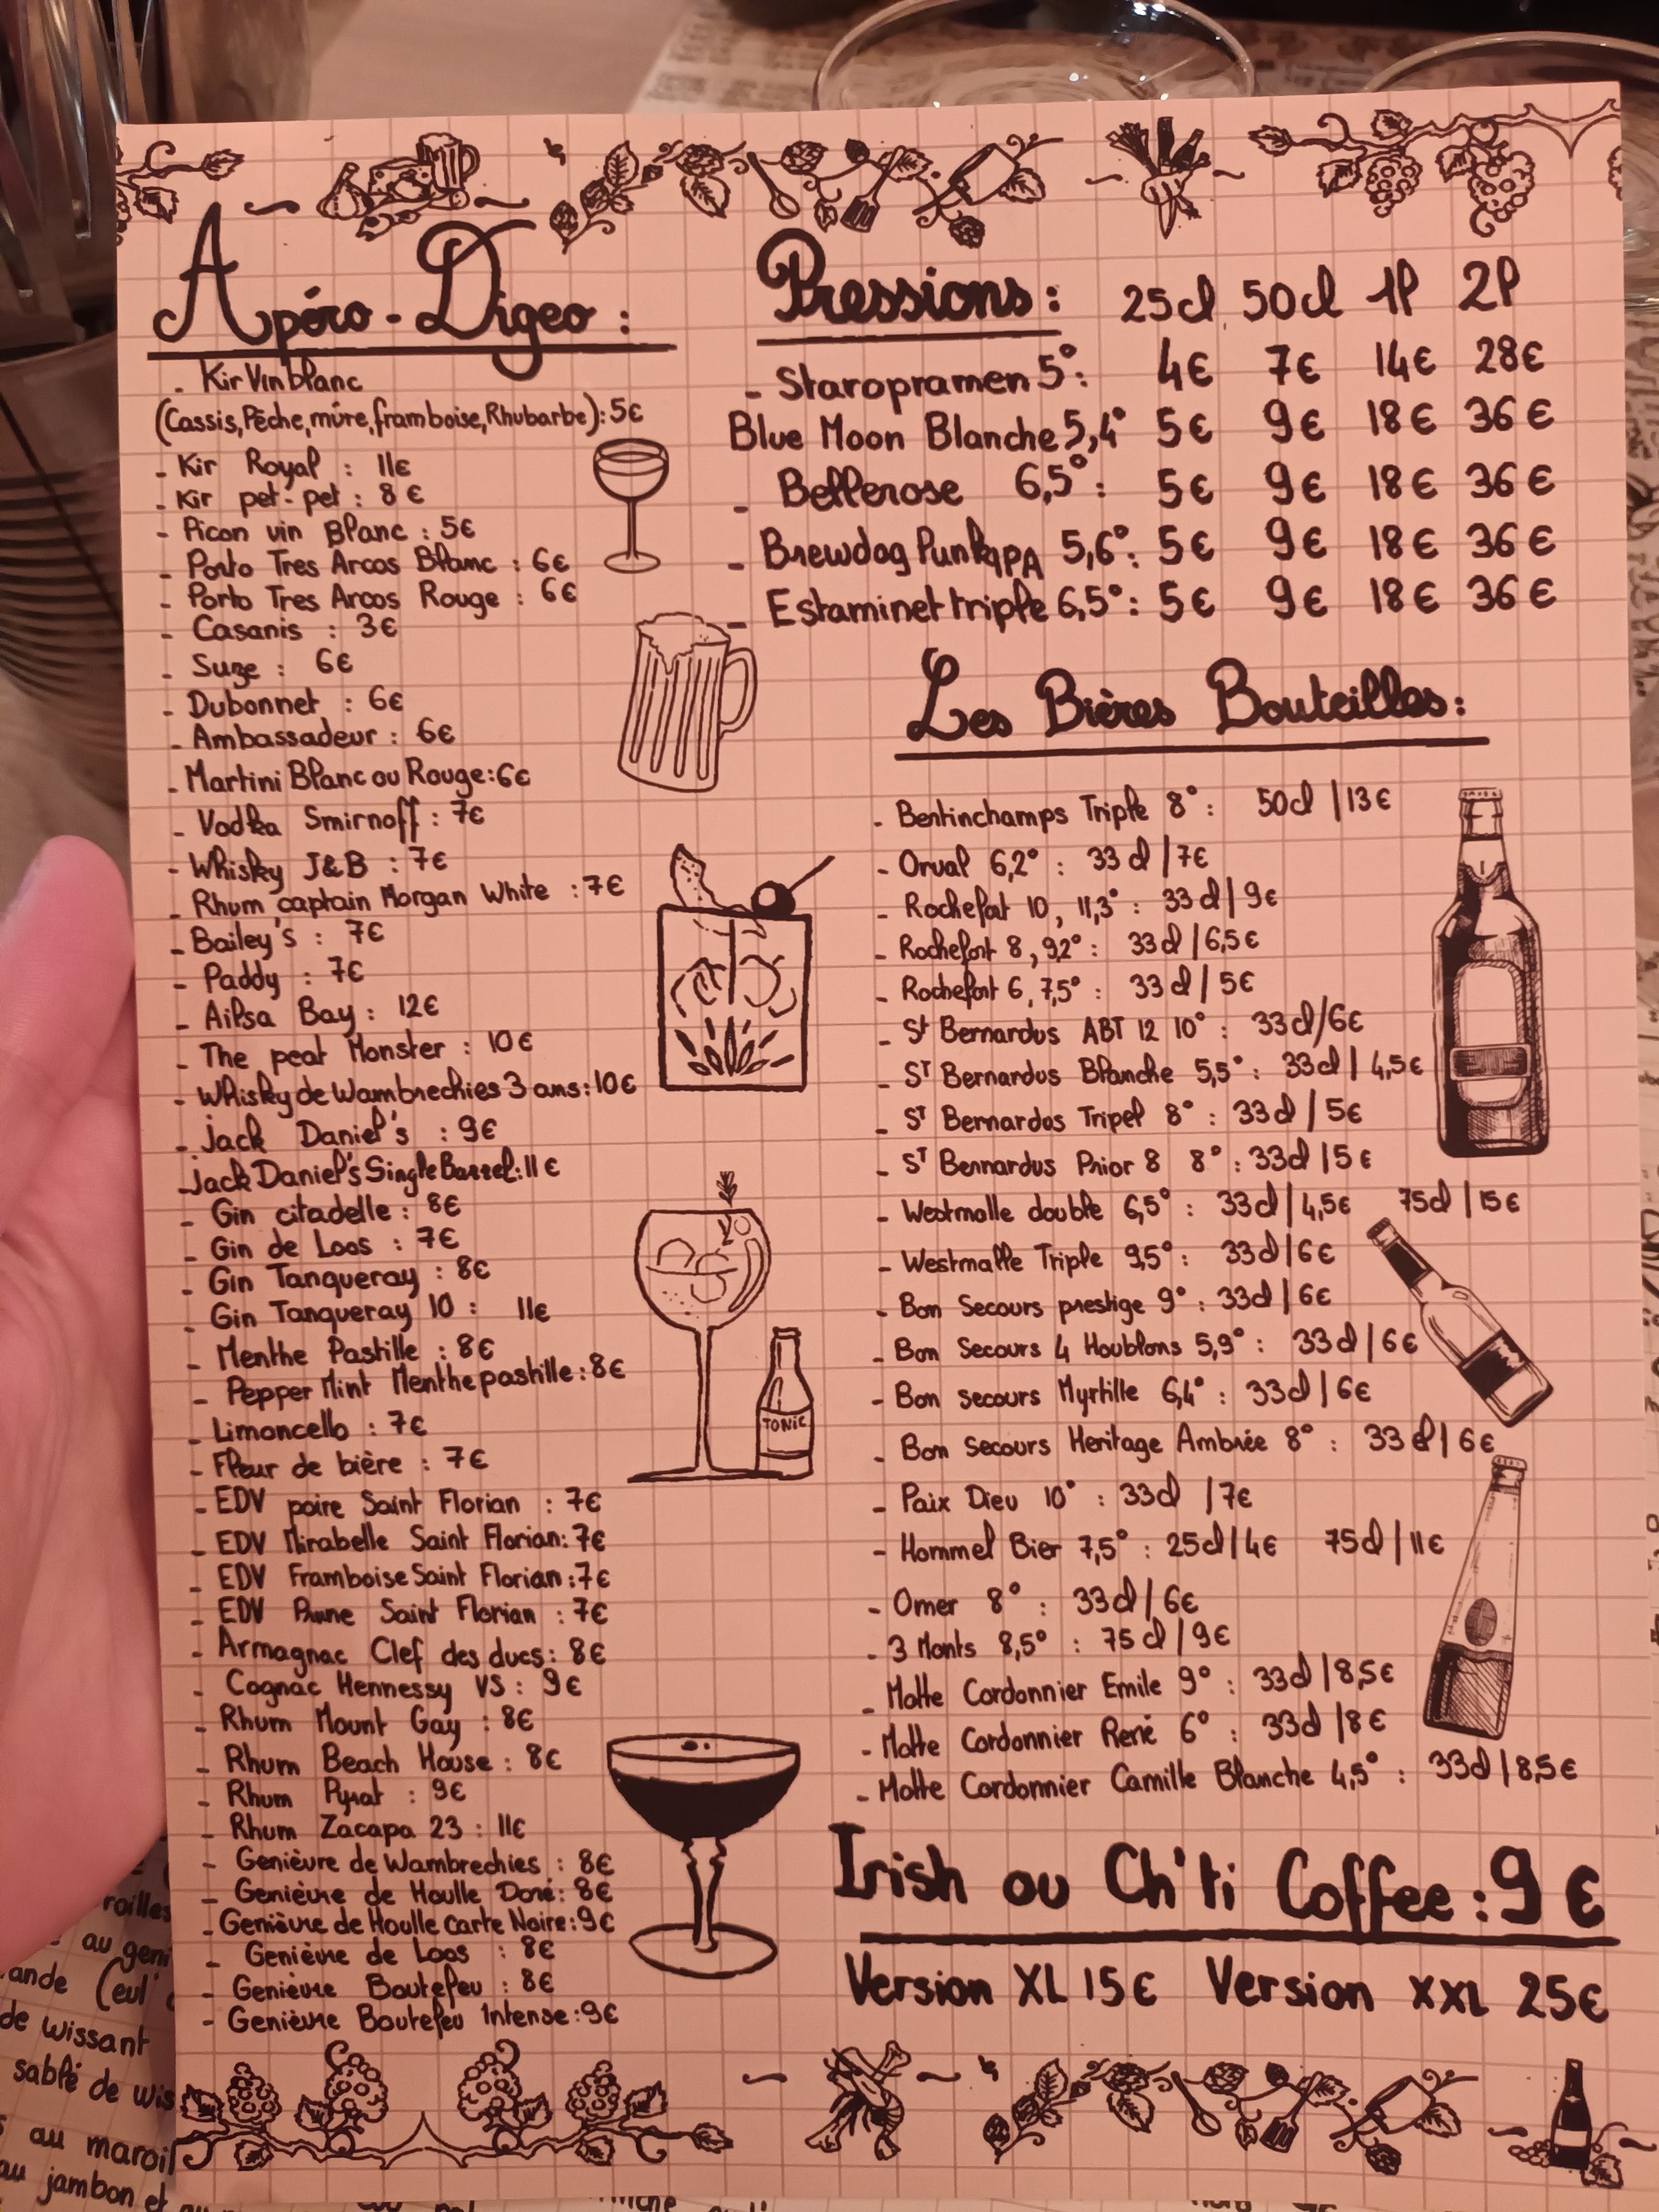 Apéro - Digeo :
- Kir Vin blanc
(Cassis, Pêche, mûre, framboise, Rhubarbe) : 5€
- Kir Royal : 11€
- Kir pet-pet : 8€
- Picon vin Blanc : 5€
- Porto Tres Arcos Blanc : 6€
- Porto Tres Arcos Rouge : 6€
- Casanis : 3€
- Suze : 6€
- Dubonnet : 6€
- Ambassadeur : 6€
- Martini Blanc ou Rouge : 6€
- Vodka Smirnoff : 7€
- Whisky J&B : 7€
- Rhum captain Morgan White : 7€
- Bailey's : 7€
- Paddy : 7€
- Ailsa Bay : 12€
- The peat Monster : 10€
- Whisky de Wambrechies 3 ans : 10€
- Jack Daniel's : 9€
- Jack Daniel's Single Barrel : 11€
- Gin citadelle : 8€
- Gin de Loos : 7€
- Gin Tanqueray : 8€
- Gin Tanqueray 10 : 11€
- Menthe Pastille : 8€
- Pepper Mint Menthe pastille : 8€
- Limoncello : 7€
- Fleur de bière : 7€
- EDV poire Saint Florian : 7€
- EDV Mirabelle Saint Florian : 7€
- EDV Framboise Saint Florian : 7€
- EDV Prune Saint Florian : 7€
- Armagnac Clef des ducs : 8€
- Cognac Hennessy VS : 9€
- Rhum Mount Gay : 8€
- Rhum Beach House : 8€
- Rhum Pyrat : 9€
- Rhum Zacapa 23 : 11€
- Genièvre de Wambrechies : 8€
- Genièvre de Houlle Doré : 8€
- Genièvre de Houlle carte Noire : 9€
- Genièvre de Loos : 8€
- Genièvre Boutefeu : 8€
- Genièvre Boutefeu Intense : 9€
TONIC
Pressions : 25cl 50cl 1P 2P
- Staropramen 5° : 4€ 7€ 14€ 28€
Blue Moon Blanche 5,4° 5€ 9€ 18€ 36€
- Bellerose 6,5° : 5€ 9€ 18€ 36€
- Brewdog Punk IPA 5,6° : 5€ 9€ 18€ 36€
- Estaminet triple 6,5° : 5€ 9€ 18€ 36€
Les Bières Bouteilles :
- Bertinchamps Triple 8° : 50cl | 13€
- Orval 6,2° : 33cl | 7€
- Rochefort 10, 11,3° : 33cl | 9€
- Rochefort 8, 9,2° : 33cl | 6,5€
- Rochefort 6, 7,5° : 33cl | 5€
- St Bernardus ABT 12 10° : 33cl / 6€
- ST Bernardus Blanche 5,5° : 33cl | 4,5€
- ST Bernardos Tripel 8° : 33cl | 5€
- ST Bernardus Prior 8 8° : 33cl | 5€
- Westmalle double 6,5° : 33cl | 4,5€ 75cl | 15€
- Westmalle Triple 9,5° : 33cl | 6€
- Bon Secours prestige 9° : 33cl | 6€
- Bon Secours 4 Houblons 5,9° : 33cl | 6€
- Bon secours Myrtille 6,4° : 33cl | 6€
- Bon Secours Heritage Ambrée 8° : 33cl | 6€
- Paix Dieu 10° : 33cl | 7€
- Hommel Bier 7,5° : 25cl | 4€ 75cl | 11€
- Omer 8° : 33cl | 6€
- 3 Monts 8,5° : 75cl | 9€
- Motte Cordonnier Emile 9° : 33cl | 8,5€
- Motte Cordonnier René 6° : 33cl | 8€
- Motte Cordonnier Camille Blanche 4,5° : 33cl | 8,5€
Irish ou Ch'ti Coffee : 9€
Version XL 15€ Version XXL 25€
roilles
au geni
ande (eul'
de wissant
sablé de wis
au maroil
au jambon et